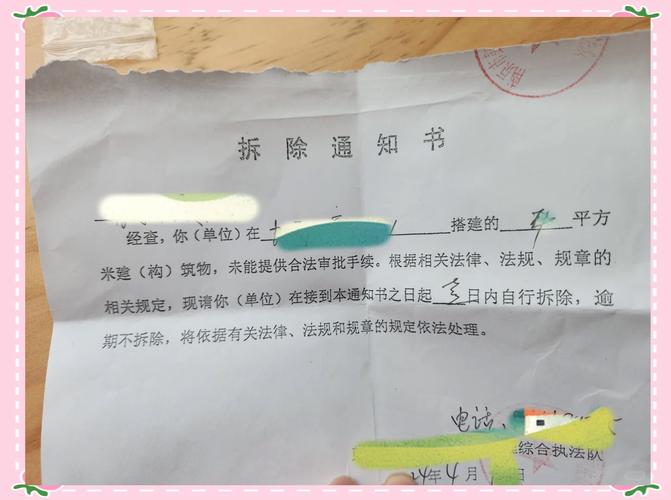 拆除通知书
经查，你（单位）在 搭建的 平方
米建（构）筑物，未能提供合法审批手续。根据相关法律、法规、规章的
相关规定，现请你（单位）在接到本通知书之日起 日内自行拆除，逾
期不拆除，将依据有关法律、法规和规章的规定依法处理。
电话：
综合执法队
年4月 日